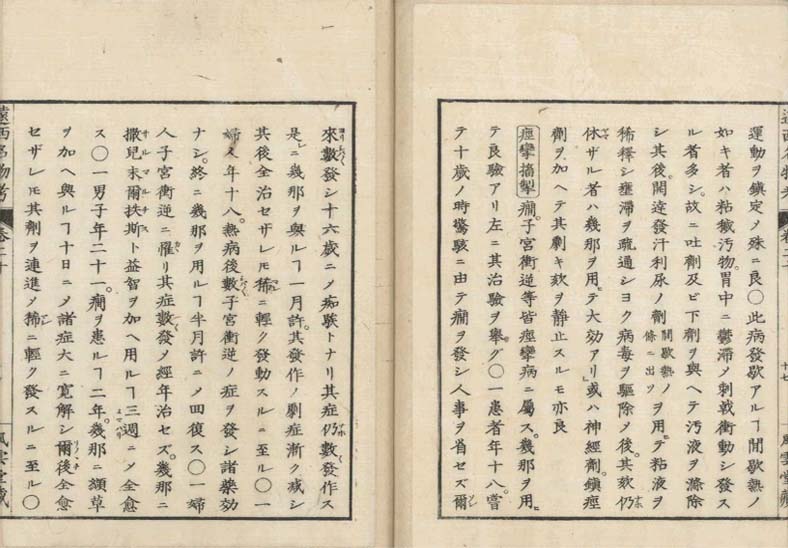 運動ヲ鎮定〆殊ニ良〇此病發歇アルヿ間歇熱ノ
如キ者ハ粘穢汚物胃中ニ鬱滞〆刺戟衝動シ發ス
ル者多シ。故ニ吐劑及ビ下劑ヲ與ヘテ汚液ヲ滌除
シ其後。開達發汗利尿ノ劑間歇熱ノ條ニ出ツヲ用。テ粘液ヲ
稀釋シ壅滞ヲ疏通シヨク病毒ヲ驅除〆後。其欬仍
休ザル者ハ幾那ヲ用。テ大効アリ或ハ神經劑。鎮痙
劑ヲ加ヘテ其劇キ欬ヲ静止スルモ亦良
痙攣搐掣 癇。子宮衝逆等皆痙攣病ニ屬ス。幾那ヲ用。
テ良驗アリ左ニ其治驗ヲ舉グ〇一患者年十八。嘗
テ十歳ノ時驚駭ニ由テ癇ヲ發シ人事ヲ省セズ爾
來數發シ十六歳ニ〆痴騃トナリ其症仍數發作ス
是ニ幾那ヲ與ルヿ一月許。其發作ノ劇症漸ク減シ
其後全治セザレ𪜈稀ニ輕ク發動スルニ至ル〇一
婦人年十八。熱病後數子宮衝逆ノ症ヲ發シ諸藥効
ナシ。終ニ幾那ヲ用ルヿ半月許ニ〆回復ス〇一婦
人子宮衝逆ニ罹リ其症數發〆經年治セズ。幾那ニ
撒兒末爾扶斯ト益智ヲ加ヘ用ルヿ三週ニ〆全愈
ス〇一男子年二十一。癇ヲ患ルヿ二年。幾那ニ纈草
ヲ加ヘ與ルヿ十日ニ〆諸症大ニ寛解シ爾後全愈
セザレ𪜈其劑ヲ連進〆稀ニ輕ク發スルニ至ル〇
遠西名物考
卷二十
風雲堂藏